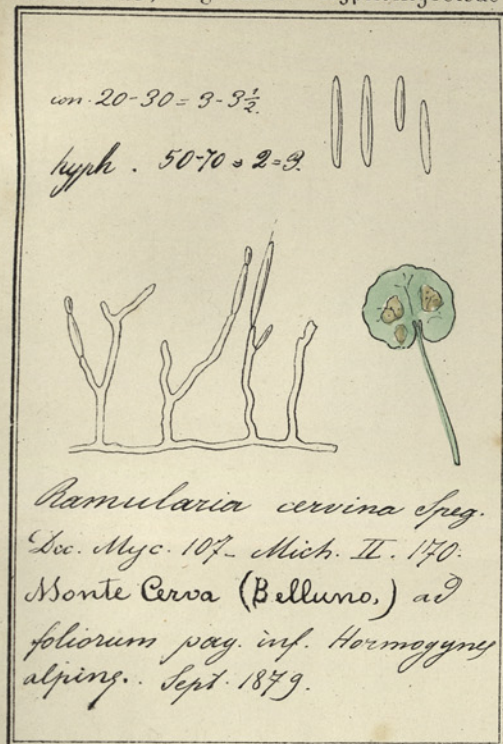 con. 20-30 = 3-3½.
hyph. 50-70 = 2=3.
Ramularia cervina Speg.
Dec. Myc. 107_ Mich. II. 170.
Monte Cerva (Belluno,) ad
foliorum pag. inf. Homogynes
alpinę. Sept. 1879.